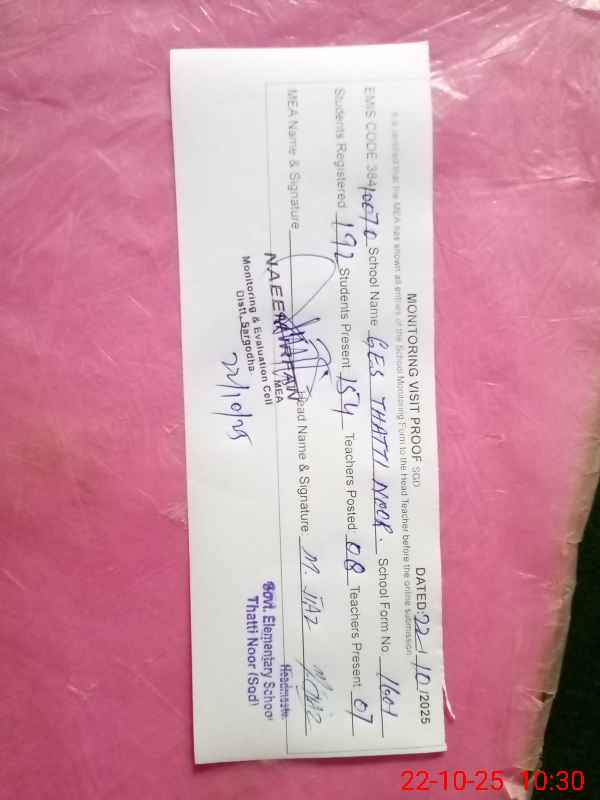 MONITORING VISIT PROOF SGD
DATED: 22/10/2025
It is certified that the MEA has shown all entries of the School Monitoring Form to the Head Teacher before the online submission
EMIS CODE 38410070 School Name GES THATTI NOOR. School Form No 1601
Students Registered 192 Students Present 154 Teachers Posted 08 Teachers Present 07
MEA Name & Signature Head Name & Signature M. IJAZ
NAEEM IRFAN
MEA
Monitoring & Evaluation Cell
Distt. Sargodha
22/10/25
Headmaste
Govt. Elementary School
Thatti Noor (Sgd)
22-10-25 10:30